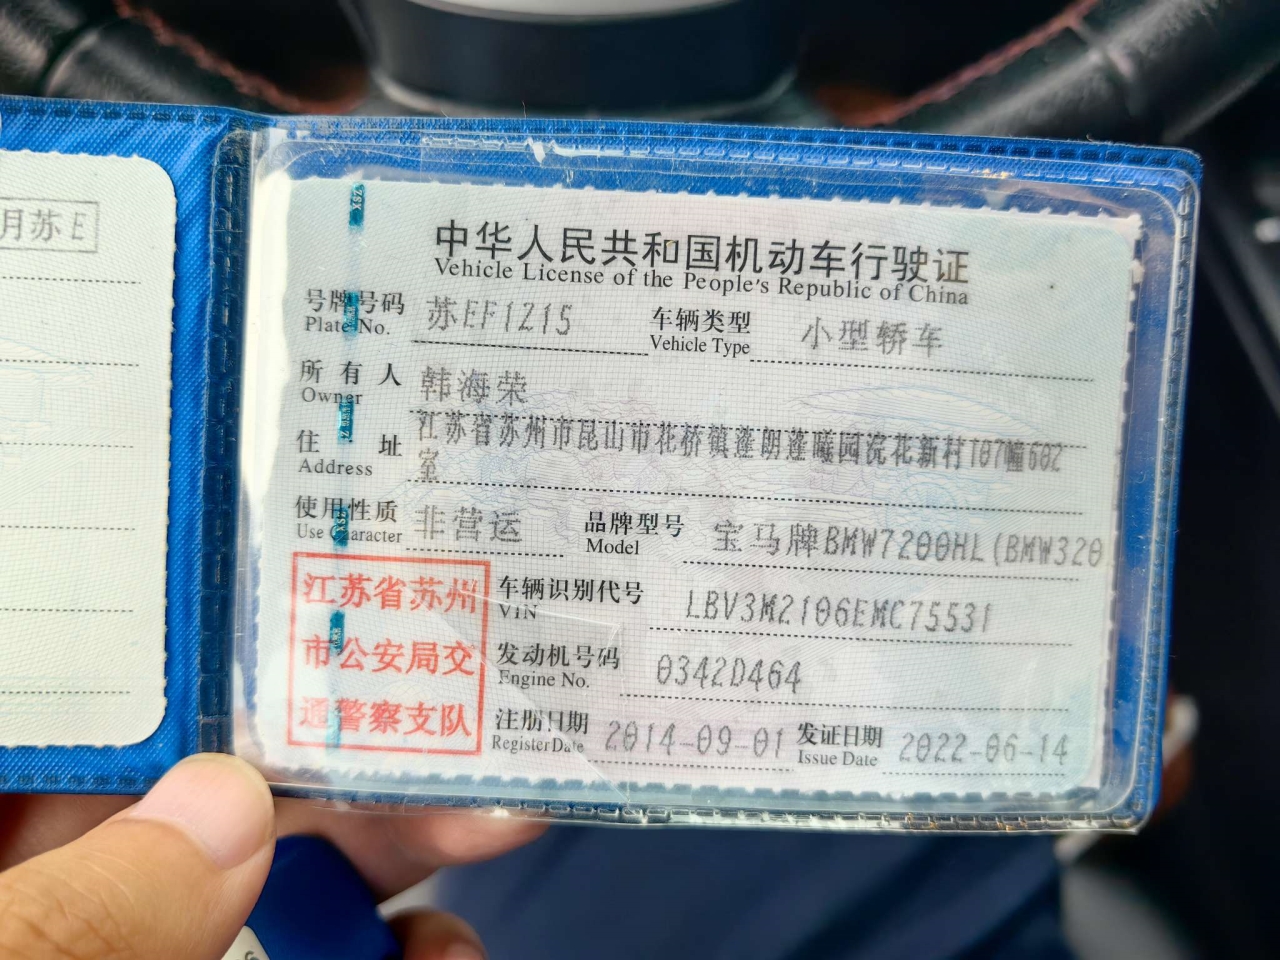 月苏E
中华人民共和国机动车行驶证
Vehicle License of the People's Republic of China
号牌号码 苏EF1Z15 车辆类型 小型轿车
Plate No. Vehicle Type
所有人 韩海荣
Owner
住址 江苏省苏州市昆山市花桥镇蓬朗蓬曦园浣花新村T07幢602
Address 室
使用性质 非营运 品牌型号 宝马牌BMW7200HL(BMW320
Use Character Model
江苏省苏州
市公安局交
通警察支队
车辆识别代号 LBV3M2106EMC75531
VIN
发动机号码 0342D464
Engine No.
注册日期 2014-09-01 发证日期 2022-06-14
Register Date Issue Date